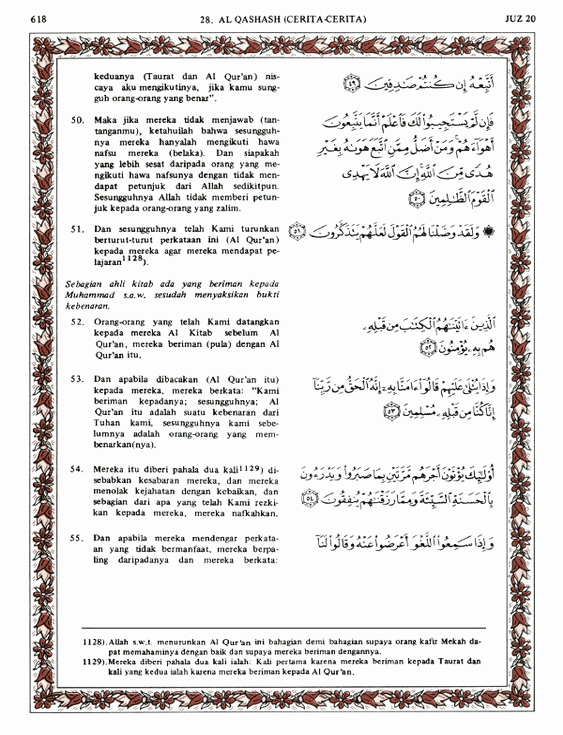 618
28. AL QASHASH (CERITA-CERITA)
JUZ 20
keduanya (Taurat dan Al Qur'an) nis-
caya aku mengikutinya, jika kamu sung-
guh orang-orang yang benar".
أَتَّبِعْهُ إِن كُنتُمْ صَٰدِقِينَ ﴿٤٩﴾
50. Maka jika mereka tidak menjawab (tan-
tanganmu), ketahuilah bahwa sesungguh-
nya mereka hanyalah mengikuti hawa
nafsu mereka (belaka). Dan siapakah
yang lebih sesat daripada orang yang me-
ngikuti hawa nafsunya dengan tidak men-
dapat petunjuk dari Allah sedikitpun.
Sesungguhnya Allah tidak memberi petun-
juk kepada orang-orang yang zalim.
فَإِن لَّمْ يَسْتَجِيبُوا۟ لَكَ فَٱعْلَمْ أَنَّمَا يَتَّبِعُونَ
أَهْوَآءَهُمْ وَمَنْ أَضَلُّ مِمَّنِ ٱتَّبَعَ هَوَىٰهُ بِغَيْرِ
هُدًى مِّنَ ٱللَّهِ إِنَّ ٱللَّهَ لَا يَهْدِى
ٱلْقَوْمَ ٱلظَّٰلِمِينَ ﴿٥٠﴾
51. Dan sesungguhnya telah Kami turunkan
berturut-turut perkataan ini (Al Qur'an)
kepada mereka agar mereka mendapat pe-
lajaran1128).
۞ وَلَقَدْ وَصَّلْنَا لَهُمُ ٱلْقَوْلَ لَعَلَّهُمْ يَتَذَكَّرُونَ ﴿٥١﴾
Sebagian ahli kitab ada yang beriman kepada
Muhammad s.a.w. sesudah menyaksikan bukti
kebenaran.
52. Orang-orang yang telah Kami datangkan
kepada mereka Al Kitab sebelum Al
Qur'an, mereka beriman (pula) dengan Al
Qur'an itu.
ٱلَّذِينَ ءَاتَيْنَٰهُمُ ٱلْكِتَٰبَ مِن قَبْلِهِۦ
هُم بِهِۦ يُؤْمِنُونَ ﴿٥٢﴾
53. Dan apabila dibacakan (Al Qur'an itu)
kepada mereka, mereka berkata: "Kami
beriman kepadanya; sesungguhnya; Al
Qur'an itu adalah suatu kebenaran dari
Tuhan kami, sesungguhnya kami sebe-
lumnya adalah orang-orang yang mem-
benarkan(nya).
وَإِذَا يُتْلَىٰ عَلَيْهِمْ قَالُوٓا۟ ءَامَنَّا بِهِۦٓ إِنَّهُ ٱلْحَقُّ مِن رَّبِّنَآ
إِنَّا كُنَّا مِن قَبْلِهِۦ مُسْلِمِينَ ﴿٥٣﴾
54. Mereka itu diberi pahala dua kali1129) di-
sebabkan kesabaran mereka, dan mereka
menolak kejahatan dengan kebaikan, dan
sebagian dari apa yang telah Kami rezki-
kan kepada mereka, mereka nafkahkan.
أُو۟لَٰٓئِكَ يُؤْتَوْنَ أَجْرَهُم مَّرَّتَيْنِ بِمَا صَبَرُوا۟ وَيَدْرَءُونَ
بِٱلْحَسَنَةِ ٱلسَّيِّئَةَ وَمِمَّا رَزَقْنَٰهُمْ يُنفِقُونَ ﴿٥٤﴾
55. Dan apabila mereka mendengar perkata-
an yang tidak bermanfaat, mereka berpa-
ling daripadanya dan mereka berkata:
وَإِذَا سَمِعُوا۟ ٱللَّغْوَ أَعْرَضُوا۟ عَنْهُ وَقَالُوا۟ لَنَآ
1128).Allah s.w.t. menurunkan Al Qur'an ini bahagian demi bahagian supaya orang kafir Mekah da-
pat memahaminya dengan baik dan supaya mereka beriman dengannya.
1129).Mereka diberi pahala dua kali ialah: Kali pertama karena mereka beriman kepada Taurat dan
kali yang kedua ialah karena mereka beriman kepada Al Qur'an.